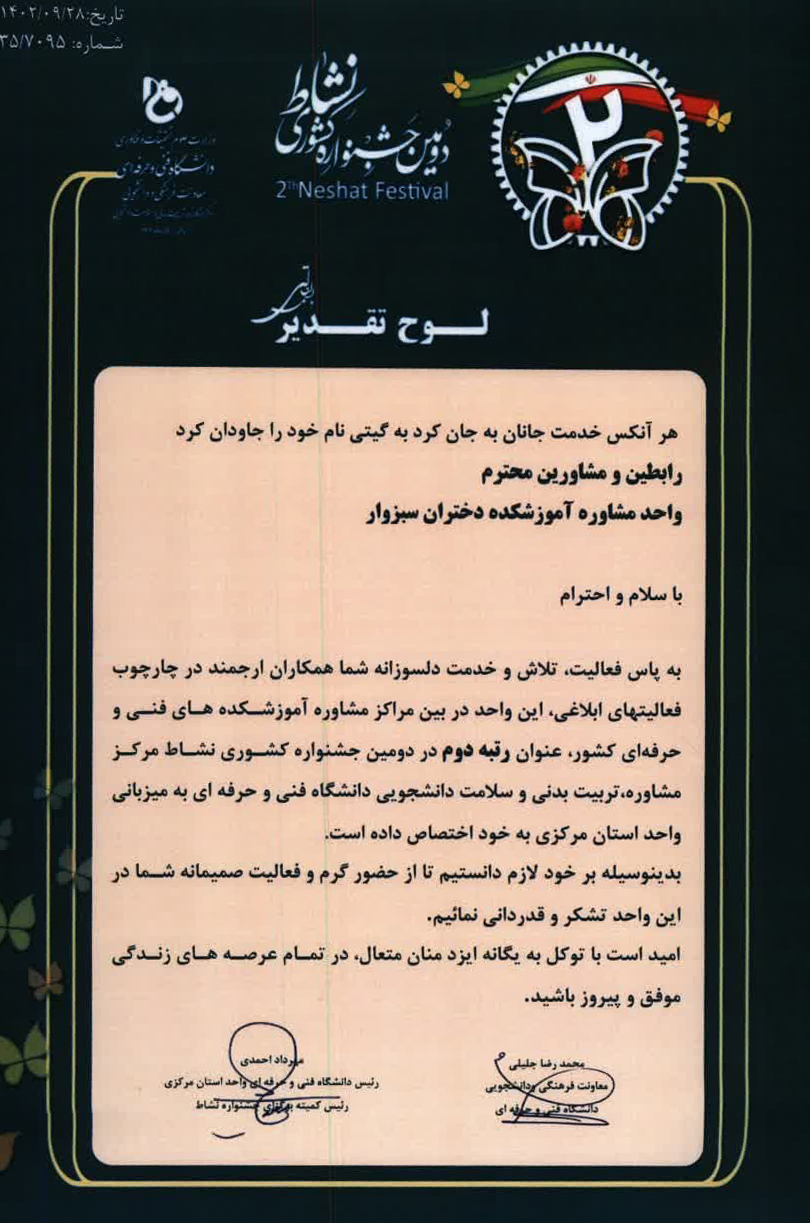 تاریخ: ۱۴۰۲/۰۹/۲۸
شماره: ۳۵/۷۰۹۵
دومین جشنواره کشوری نشاط
2th Neshat Festival
۲
وزارت علوم تحقیقات و فناوری
دانشگاه فنی و حرفه‌ای
معاونت فرهنگی و دانشجویی
لوح تقدیر
هر آنکس خدمت جانان به جان کرد به گیتی نام خود را جاودان کرد
رابطین و مشاورین محترم
واحد مشاوره آموزشکده دختران سبزوار
با سلام و احترام
به پاس فعالیت، تلاش و خدمت دلسوزانه شما همکاران ارجمند در چارچوب
فعالیتهای ابلاغی، این واحد در بین مراکز مشاوره آموزشکده های فنی و
حرفه‌ای کشور، عنوان رتبه دوم در دومین جشنواره کشوری نشاط مرکز
مشاوره،تربیت بدنی و سلامت دانشجویی دانشگاه فنی و حرفه ای به میزبانی
واحد استان مرکزی به خود اختصاص داده است.
بدینوسیله بر خود لازم دانستیم تا از حضور گرم و فعالیت صمیمانه شما در
این واحد تشکر و قدردانی نمائیم.
امید است با توکل به یگانه ایزد منان متعال، در تمام عرصه های زندگی
موفق و پیروز باشید.
محمد رضا جلیلی
معاونت فرهنگی ودانشجویی
دانشگاه فنی و حرفه ای
مهرداد احمدی
رئیس دانشگاه فنی و حرفه ای واحد استان مرکزی
رئیس کمیته برگزاری جشنواره نشاط